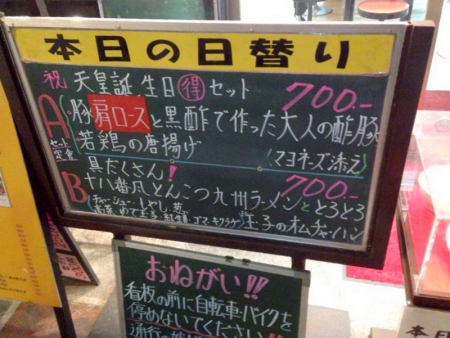 本日の日替り
祝 天皇誕生日 得 セット 700.-
A 豚肩ロースと黒酢で作った大人の酢豚
セット定食 若鶏の唐揚げ (マヨネーズ添え)
具だくさん! 700.-
B 十八番風とんこつ九州ラーメンととろとろ
玉子のオムチャーハン
おねがい!!
看板の前に自転車・バイクを
停めないでください!!
通行の
本日の